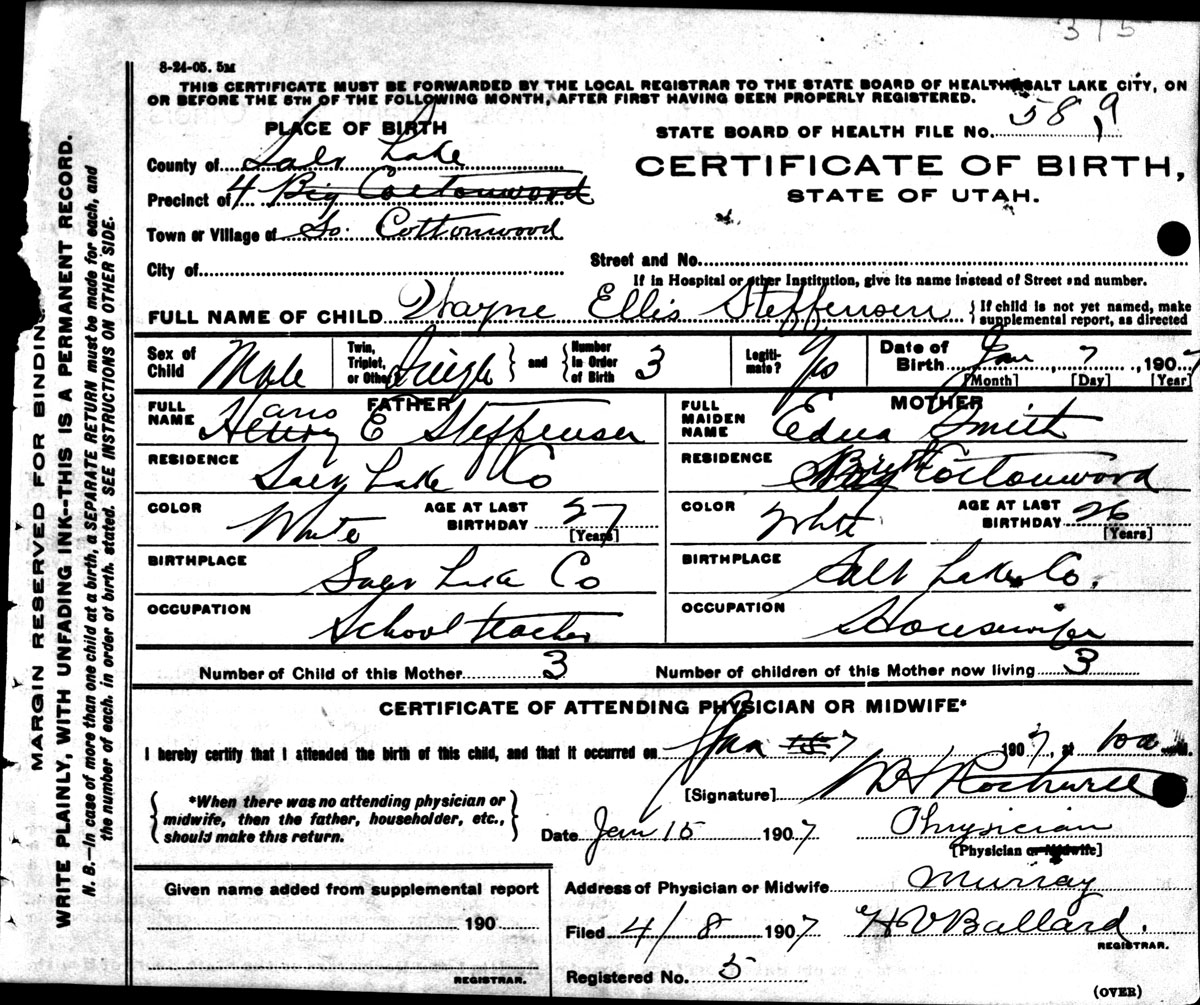 315
8-24-05. 5M
THIS CERTIFICATE MUST BE FORWARDED BY THE LOCAL REGISTRAR TO THE STATE BOARD OF HEALTH SALT LAKE CITY, ON
OR BEFORE THE 5TH OF THE FOLLOWING MONTH, AFTER FIRST HAVING BEEN PROPERLY REGISTERED.
MARGIN RESERVED FOR BINDING
WRITE PLAINLY, WITH UNFADING INK--THIS IS A PERMANENT RECORD.
N. B.—In case of more than one child at a birth, a SEPARATE RETURN must be made for each, and
the number of each, in order of birth, stated. SEE INSTRUCTIONS ON OTHER SIDE.
PLACE OF BIRTH
County of Salt Lake
Precinct of 4 Big Cottonwood
Town or Village of So. Cottonwood
City of
STATE BOARD OF HEALTH FILE No. 58,9
CERTIFICATE OF BIRTH,
STATE OF UTAH.
Street and No.
If in Hospital or other Institution, give its name instead of Street and number.
FULL NAME OF CHILD Wayne Ellis Steffensen { If child is not yet named, make
supplemental report, as directed
Sex of Child Male
Twin, Triplet, or Other Single } and { Number in Order of Birth 3
Legiti- mate? Yes
Date of Birth Jan 7, 1907
[Month] [Day] [Year]
FATHER
FULL NAME Hans Henry E Steffensen
RESIDENCE Salt Lake Co
COLOR White AGE AT LAST BIRTHDAY 27
[Years]
BIRTHPLACE Salt Lake Co
OCCUPATION School teacher
MOTHER
FULL MAIDEN NAME Edna Smith
RESIDENCE Cottonwood
COLOR White AGE AT LAST BIRTHDAY 26
[Years]
BIRTHPLACE Salt Lake Co.
OCCUPATION Housewife
Number of Child of this Mother 3 Number of children of this Mother now living 3
CERTIFICATE OF ATTENDING PHYSICIAN OR MIDWIFE*
I hereby certify that I attended the birth of this child, and that it occurred on Jan 15 7 1907, at 10 a M.
{ *When there was no attending physician or
midwife, then the father, householder, etc.,
should make this return. }
[Signature] Rothwell
Date Jan 15 1907 Physician
[Physician or Midwife]
Given name added from supplemental report
190
REGISTRAR.
Address of Physician or Midwife Murray
Filed 4/8 1907 H V Ballard.
REGISTRAR.
Registered No. 5
(OVER)